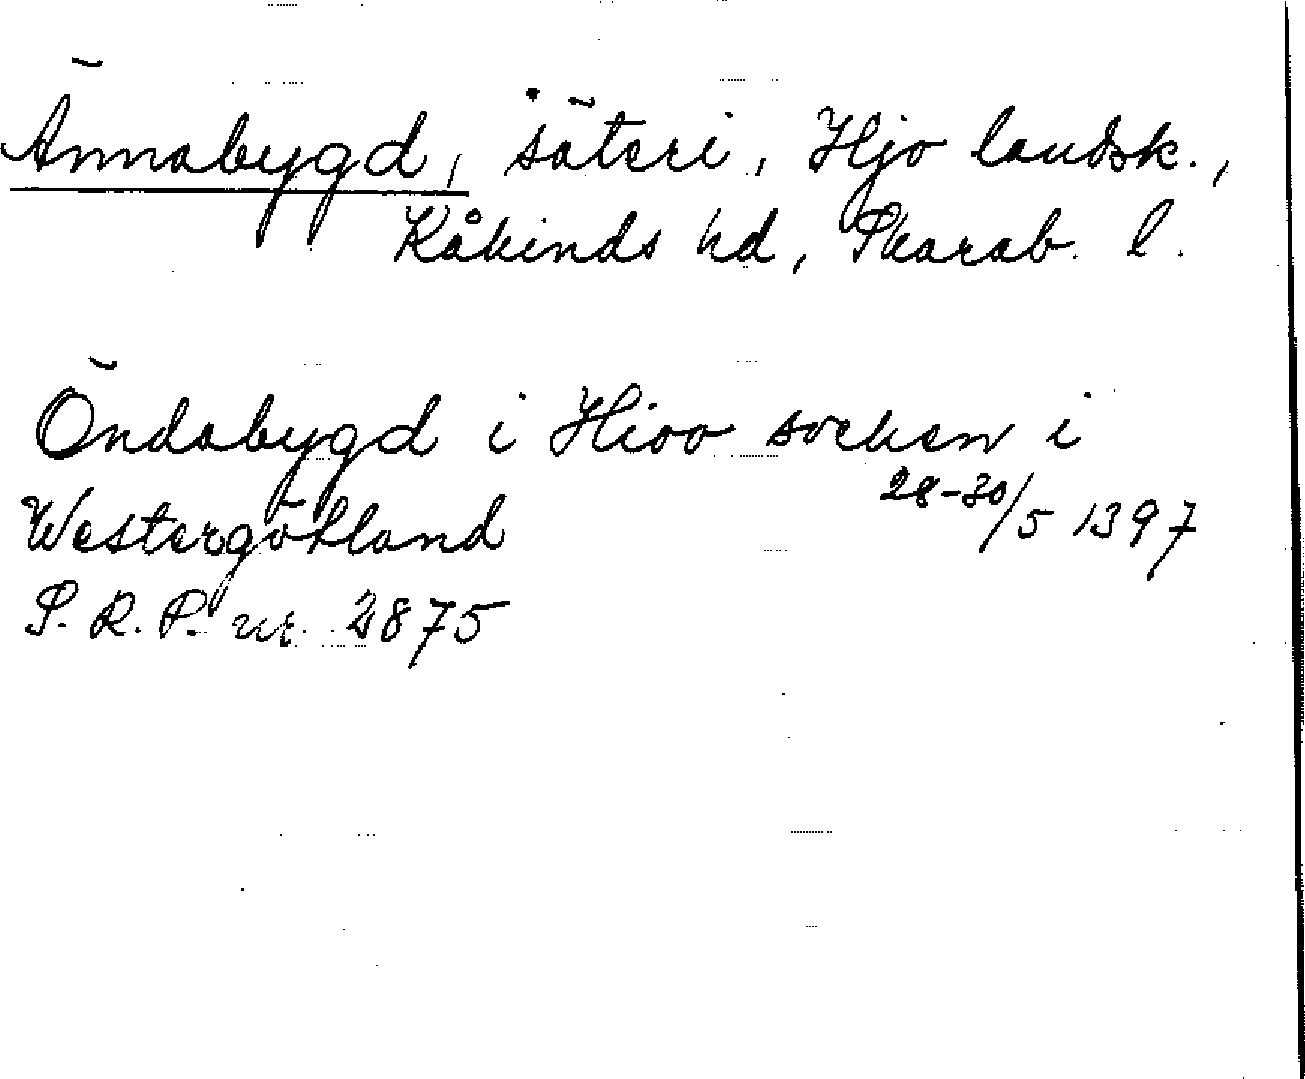 Ännabygd, säteri, Hjo landsk.,
Kåkinds hd, Skarab. l.
Öndabygd i Hioo socken i
Westergötland 28-30/5 1397
S. R. P. nr. 2875